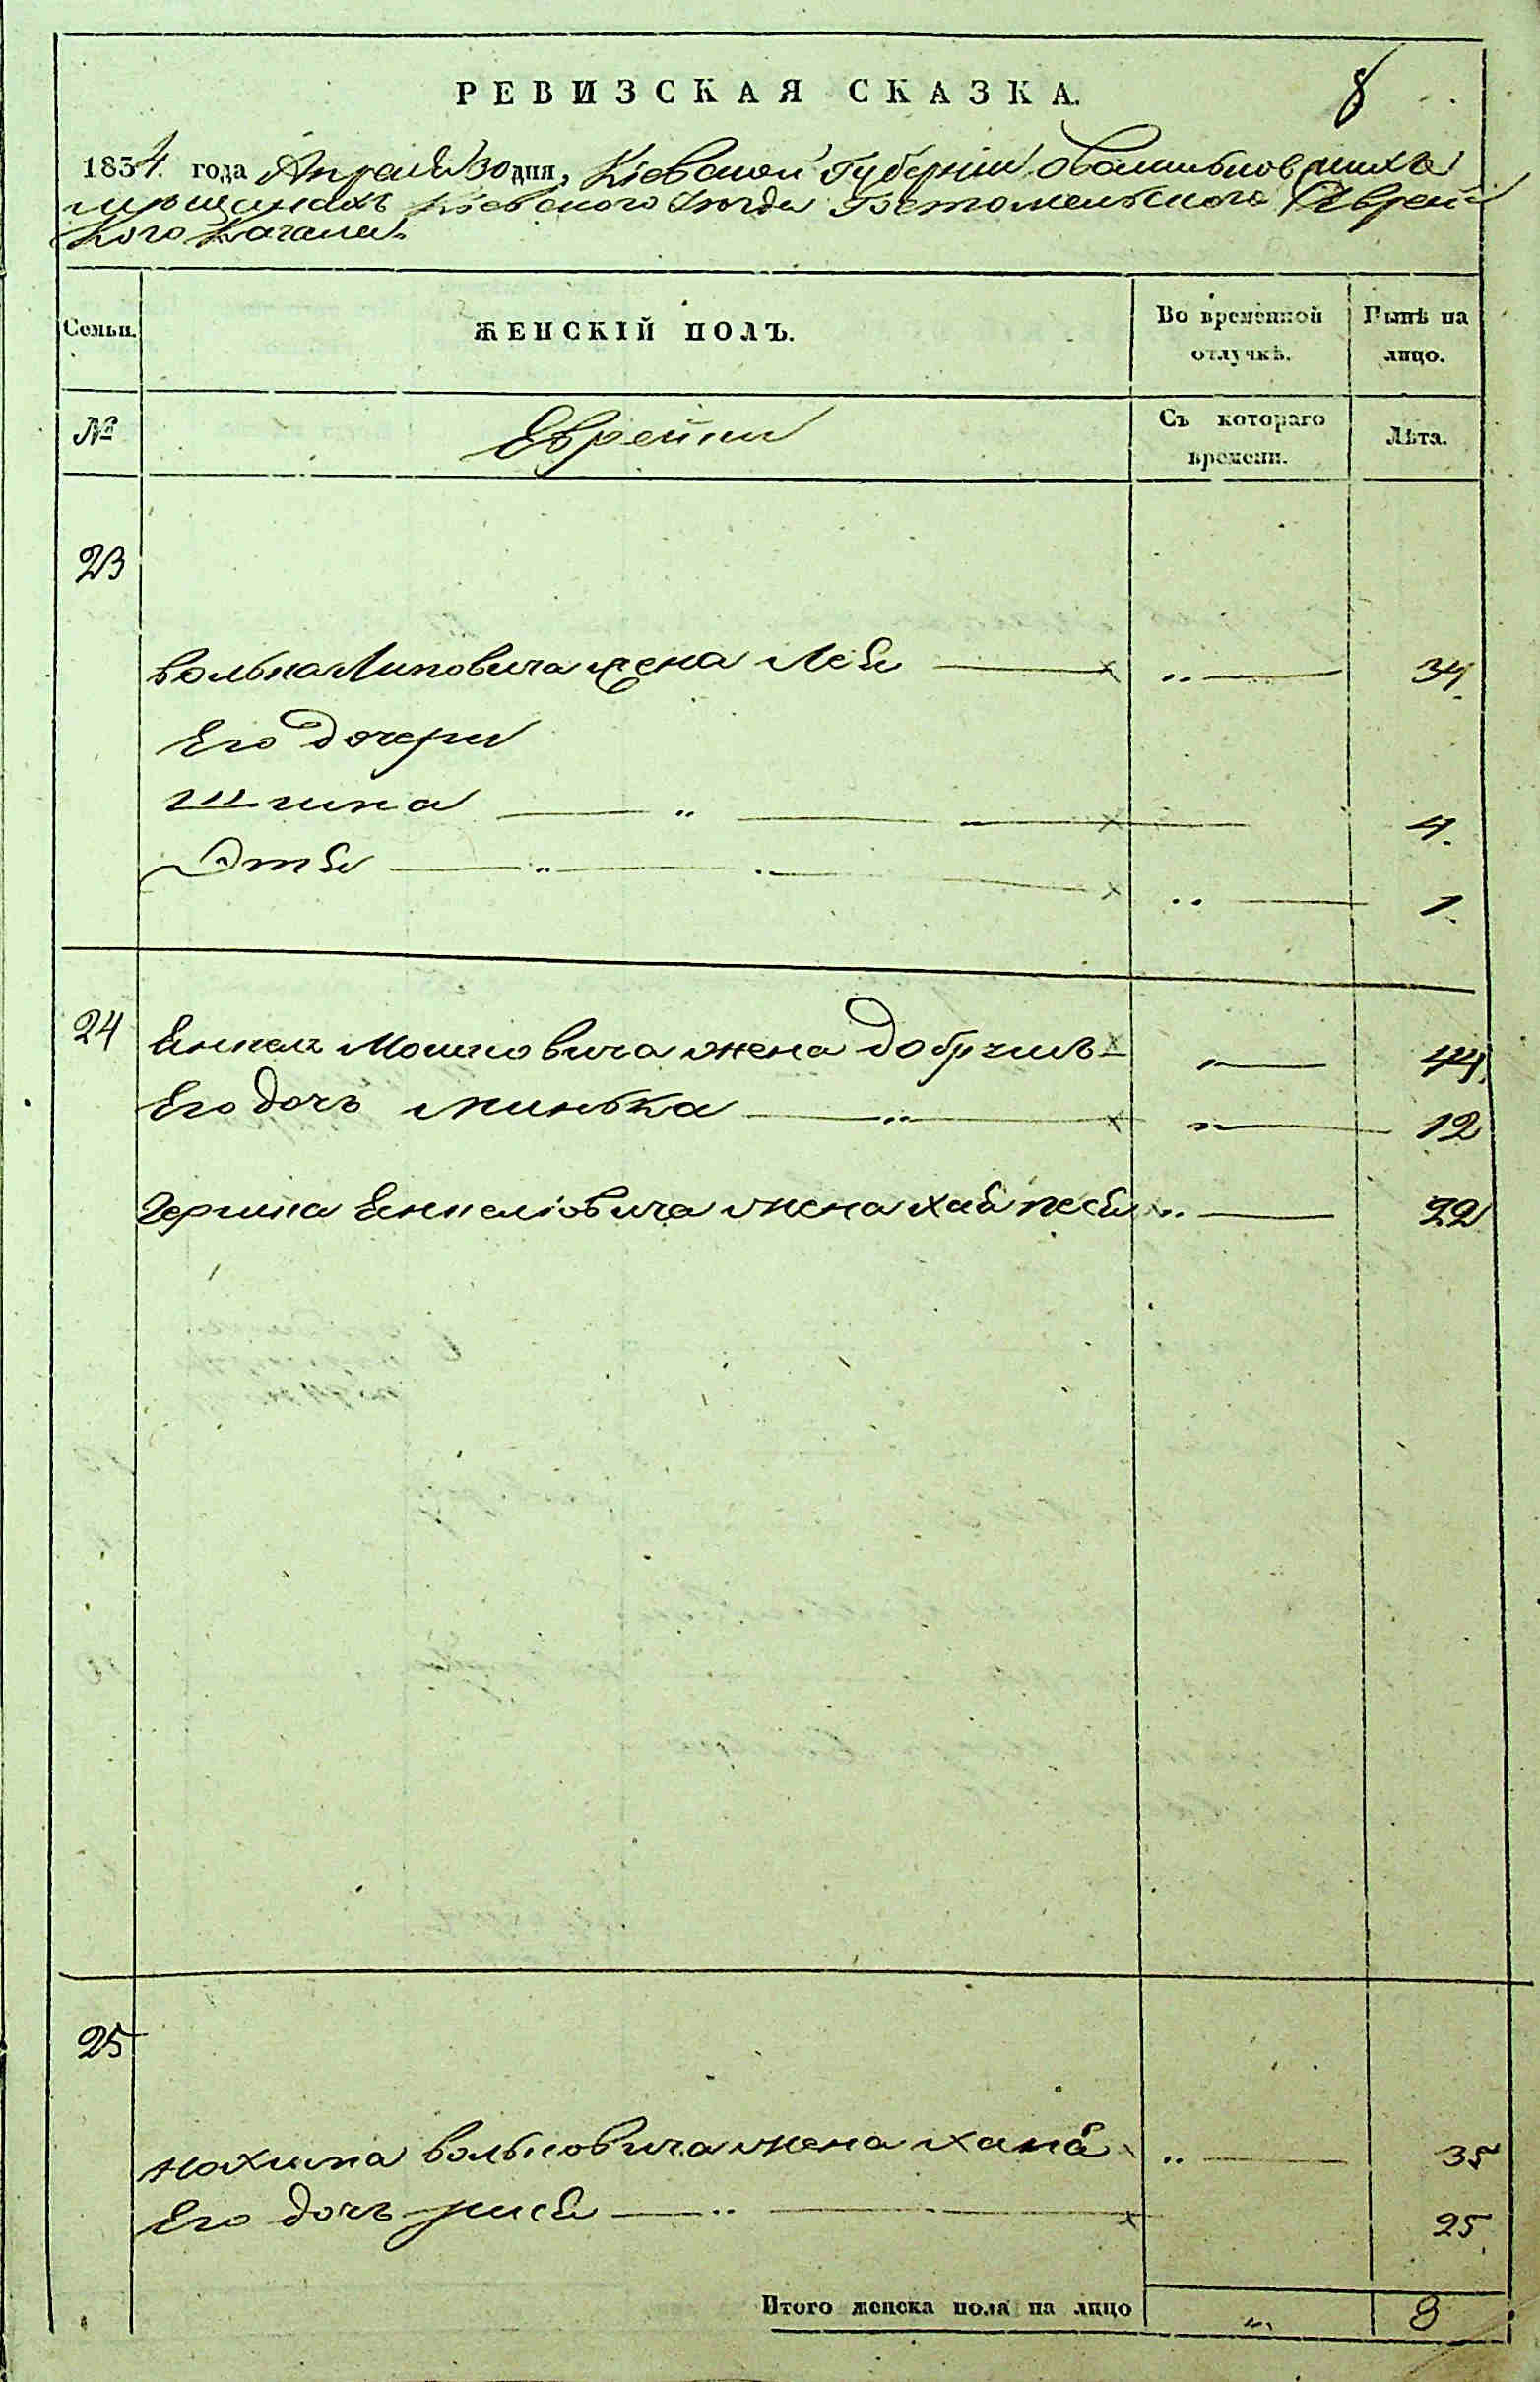 РЕВИЗСКАЯ СКАЗКА.
8
1834. года Апреля 30 дня, Кіевской Губерніи
мѣщанахъ Кіевского Уѣзда Гостомельского Еврей
ского Кагала.
Семьи. ЖЕНСКІЙ ПОЛЪ. Во временной отлучкѣ. Нынѣ на лицо.
№ Еврейки Съ котораго времени. Лѣта.
23
Волька Липовича жена Лея — „ — 34.
Его дочери
Шинка — „ — 4.
Этя — „ — „ — 1.
24 Енкеля Мошковича жена Добрушъ — „ — 44.
Его дочъ Минька — „ — „ — 12
Гершка Енкеліовича жена Хая Песя „ — 22
25
Нохима Вольковича жена Хана „ — 35
Его дочъ Рися — „ — 25
Итого женска пола на лицо „ 8